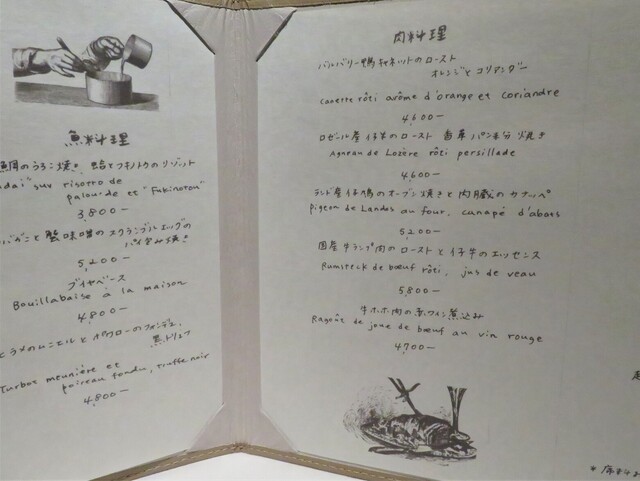 魚料理
のうろこ焼き 蛤とフキノトウのリゾット
sur risotto de
palourde et "Fukinotou"
3,800-
と蟹味噌のスクランブルエッグの
パイ包み焼き
5,200-
ブイヤベース
Bouillabaise à la maison
4,800-
ヒラメのムニエルとポワローのフォンデュ、
黒トリュフ
Turbot meunière et
poireau fondu, truffe noir
4,800-
肉料理
バルバリー鴨キャネットのロースト
オレンジとコリアンダー
canette rôti arôme d'orange et coriandre
4,600-
ロゼール産仔羊のロースト 香草パン粉焼き
Agneau de Lozère rôti persillade
4,600-
ランド産仔鳩のオーブン焼きと内臓のカナッペ
Pigeon de Landes au four, canapé d'abats
5,200-
国産牛ランプ肉のローストと仔牛のエッセンス
Rumsteck de bœuf rôti, jus de veau
5,800-
牛ホホ肉の赤ワイン煮込み
Ragoût de joue de bœuf au vin rouge
4,700-